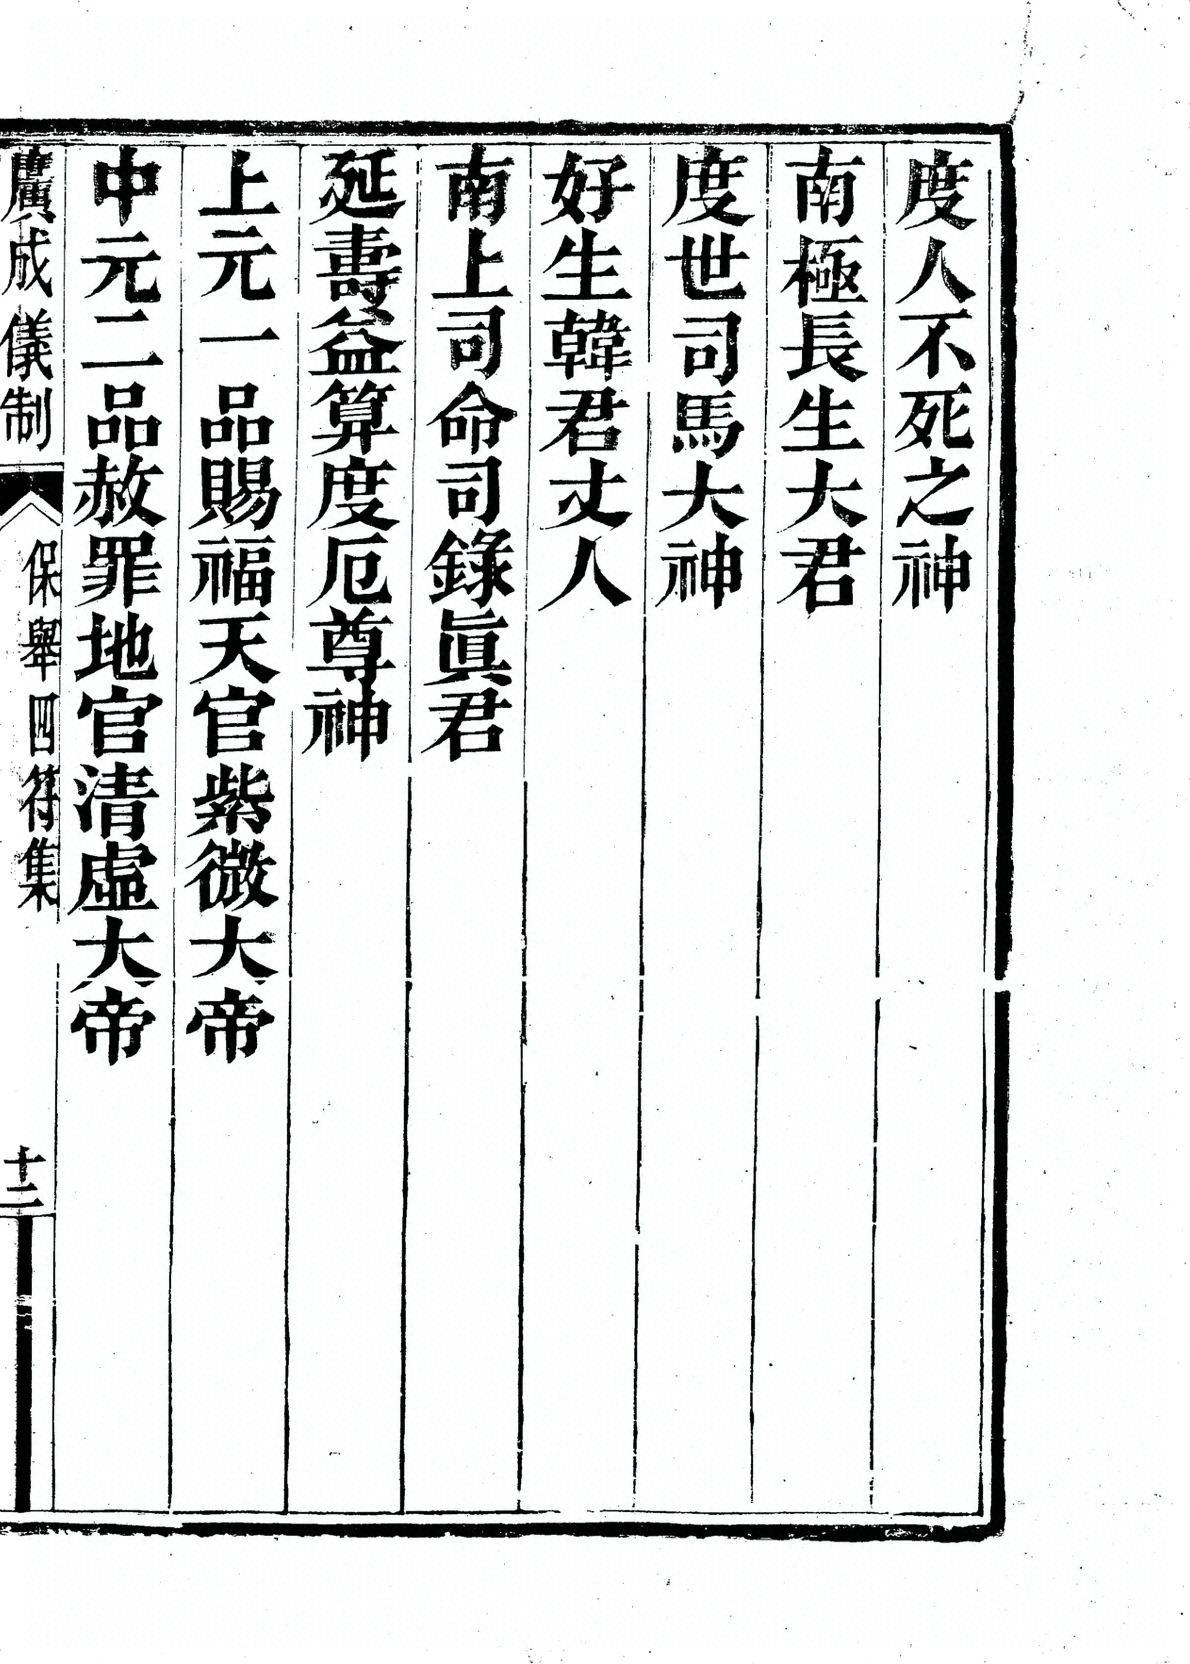 度人不死之神
南極長生大君
度世司馬大神
好生韓君丈人
南上司命司錄眞君
延壽益算度厄尊神
上元一品賜福天官紫微大帝
中元二品赦罪地官清虛大帝
廣成儀制
保舉四符集
十二